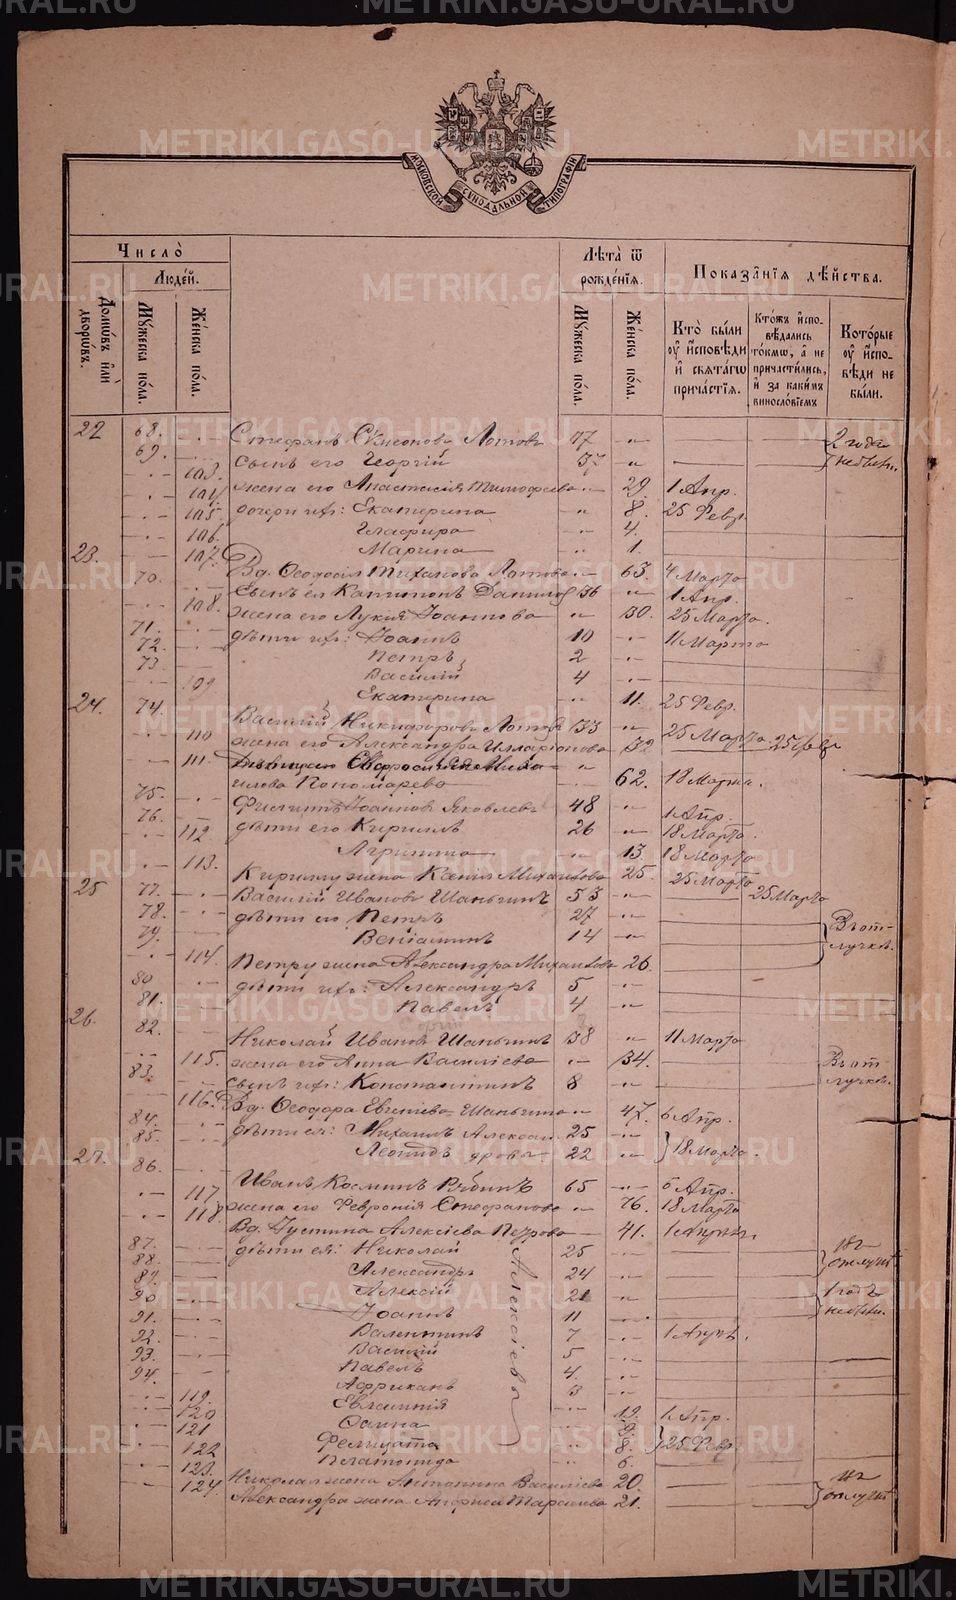 МОСКОВСКОЙ СѴНОДАЛЬНОЙ ТИПОГРАФІИ
Число̀
Людей.
Домѡвъ или дворѡвъ.
Мꙋжеска пола.
Женска пола.
Лѣта ѿ рожденїя.
Мꙋжеска пола.
Женска пола.
Показанїя дѣйства.
Кто были ѹ исповѣди и свѧтагѡ причастїя.
Ктожъ испо-вѣдались токмѡ, а не причастились, и за какимъ винословїемъ
Которые ѹ испо-вѣди не были.
22 68. Стефанъ Сѷмеоновъ Лотовъ 77 2 года
69. сынъ его Георгій 37 небыли.
103. жена его Анастасія Тимофеева 29. 1 Апр.
104. дочери ихъ: Екатерина 8. 25 Февр.
105. Глафира 4.
106. Марина 1.
23. 107. Вд. Ѳеодосія Лотова 63. 4 Марта
70. Сынъ ея Капитонъ 36 1 Апр.
108. жена его Лукия Іоаннова 30. 25 Марта.
71. дѣти ихъ: Іоаннъ 10 11 Марта
72. Петръ 2
73. Василій 4
109 Екатерина 11. 25 Февр.
24. 74. Василій Никифоровъ Лотовъ 33 25 Марта
110 жена его Александра Илларіонова 32. 25 Февр
111. Пономарева 62. 18 Марта.
75. Филиппъ Іоанновъ Яковлевъ 48 1 Апр.
76. дѣти его Кириллъ 26 18 Марта.
112 13. 18 Марта
113. Кириллу жена Ксенія Михайлова 25. 25 Марта
25 77. Василій Ивановъ Шаньгинъ 53 25 Марта
78. дѣти его Петръ 27 Въ от-
79. Веніаминъ 14 лучкѣ.
114. Петру жена Александра Михайлова 26.
80 дѣти ихъ: Александръ 5
81. Павелъ 4
26. 82. Николай Ивановъ Шаньгинъ 38 11 Марта
115. жена его Анна Василіева 34. Въ от-
83. сынъ ихъ: Константинъ 8 лучкѣ.
116. Вд. Ѳеодора Евгеніева Шаньгина 47. 6 Апр.
84. дѣти ея: Михаилъ Алексан- 25
85. Леонидъ дровы. 22 18 Марта.
27. 86. Иванъ Космин Рябинъ 65 6 Апр.
117 жена его Февронія Стефанова 76. 18 Марта
118. Вд. Іустина Алексіева Петрова 41. 1 Апрѣл.
87. дѣти ея: Николай 25
88. Александръ 24
89. Алексій 21 1 годъ
90 Іоаннъ 11 небыли.
91. Валентинъ 7 1 Апр.
92. Василій 5
93. Павелъ 4.
94. Африканъ 3
Алексіевы
119. Евгенія 19. 1 Апр.
120 9.
121 Фелицата 8. 25 Февр.
122 Платонида 6.
123. Николая жена Антонина Василіева 20.
124. Александра жена 21.
METRIKI.GASO-URAL.RU